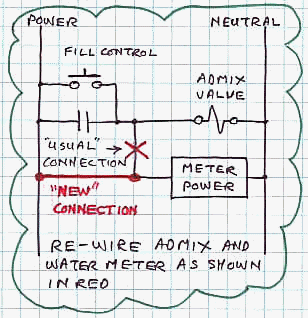 POWER
NEUTRAL
FILL CONTROL
ADMIX
VALVE
"USUAL"
CONNECTION
METER
POWER
"NEW"
CONNECTION
RE-WIRE ADMIX AND
WATER METER AS SHOWN
IN RED